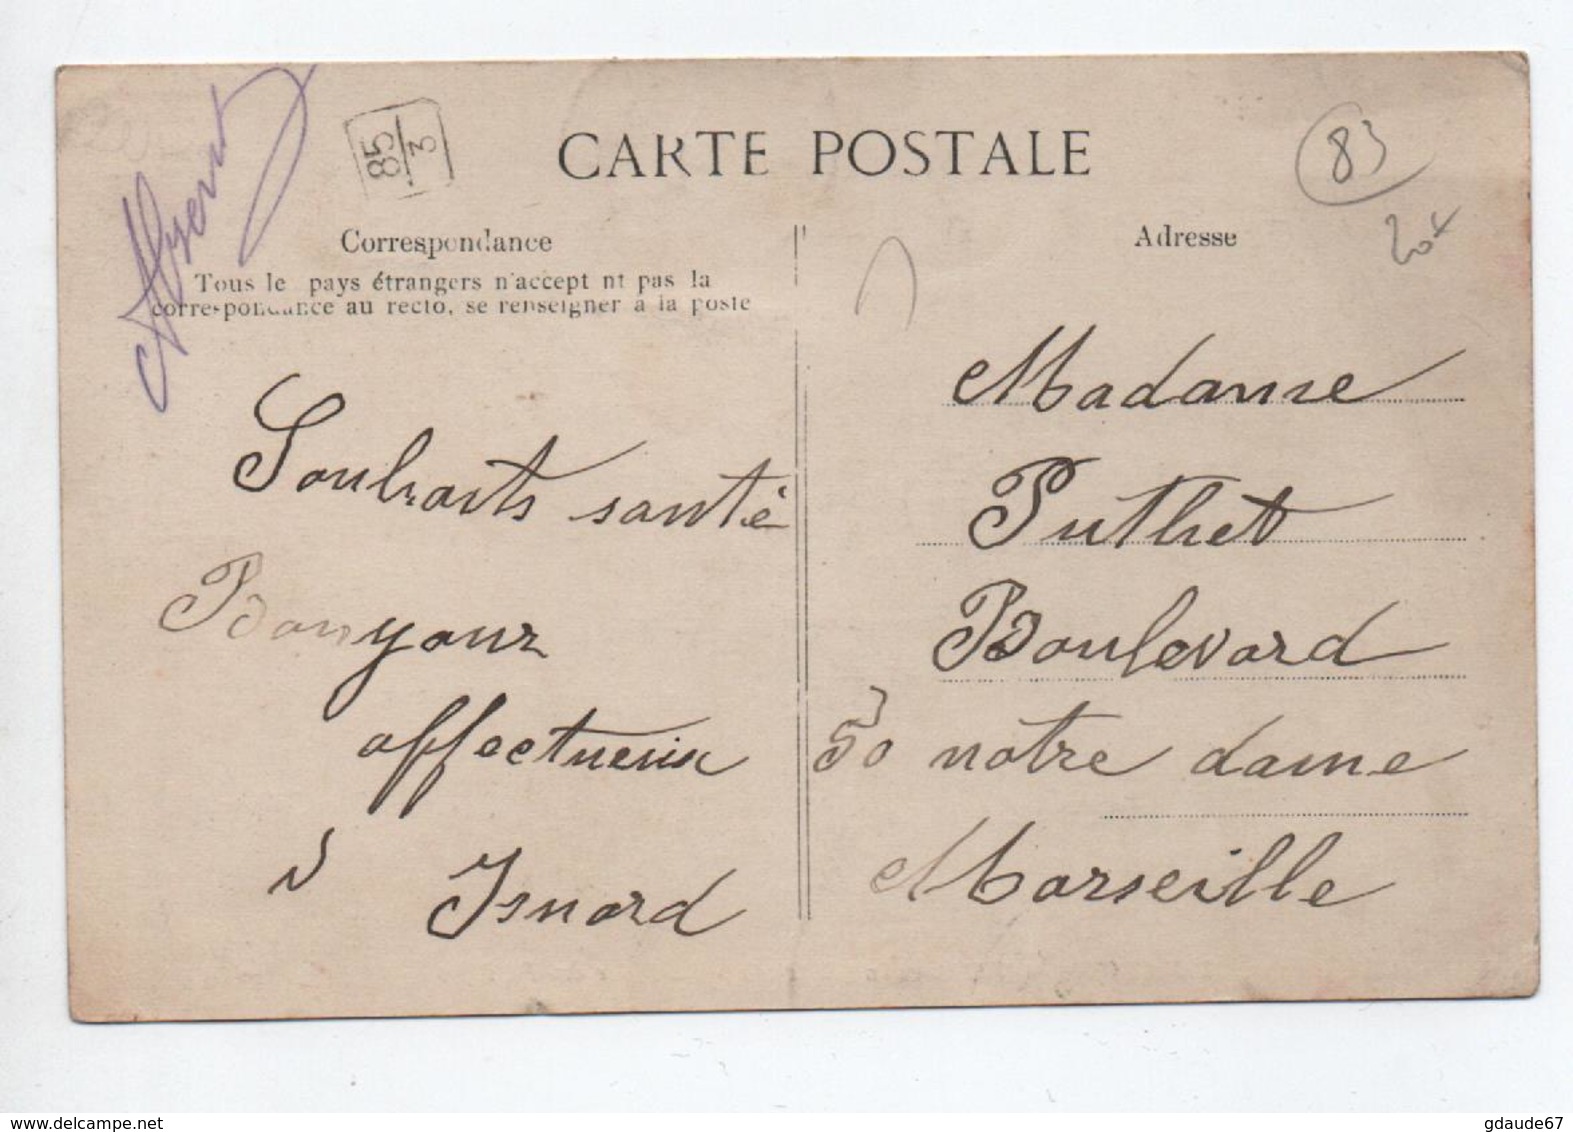 85
3
CARTE POSTALE
83
Correspondance
Adresse
Tous le pays étrangers n'accept nt pas la
correspondance au recto, se renseigner à la poste
Souhaits santé
Bonyour
affectueux
Isnard
Madame
Puthet
Boulevard
50 notre dame
Marseille
delcampe.net
gdaude67